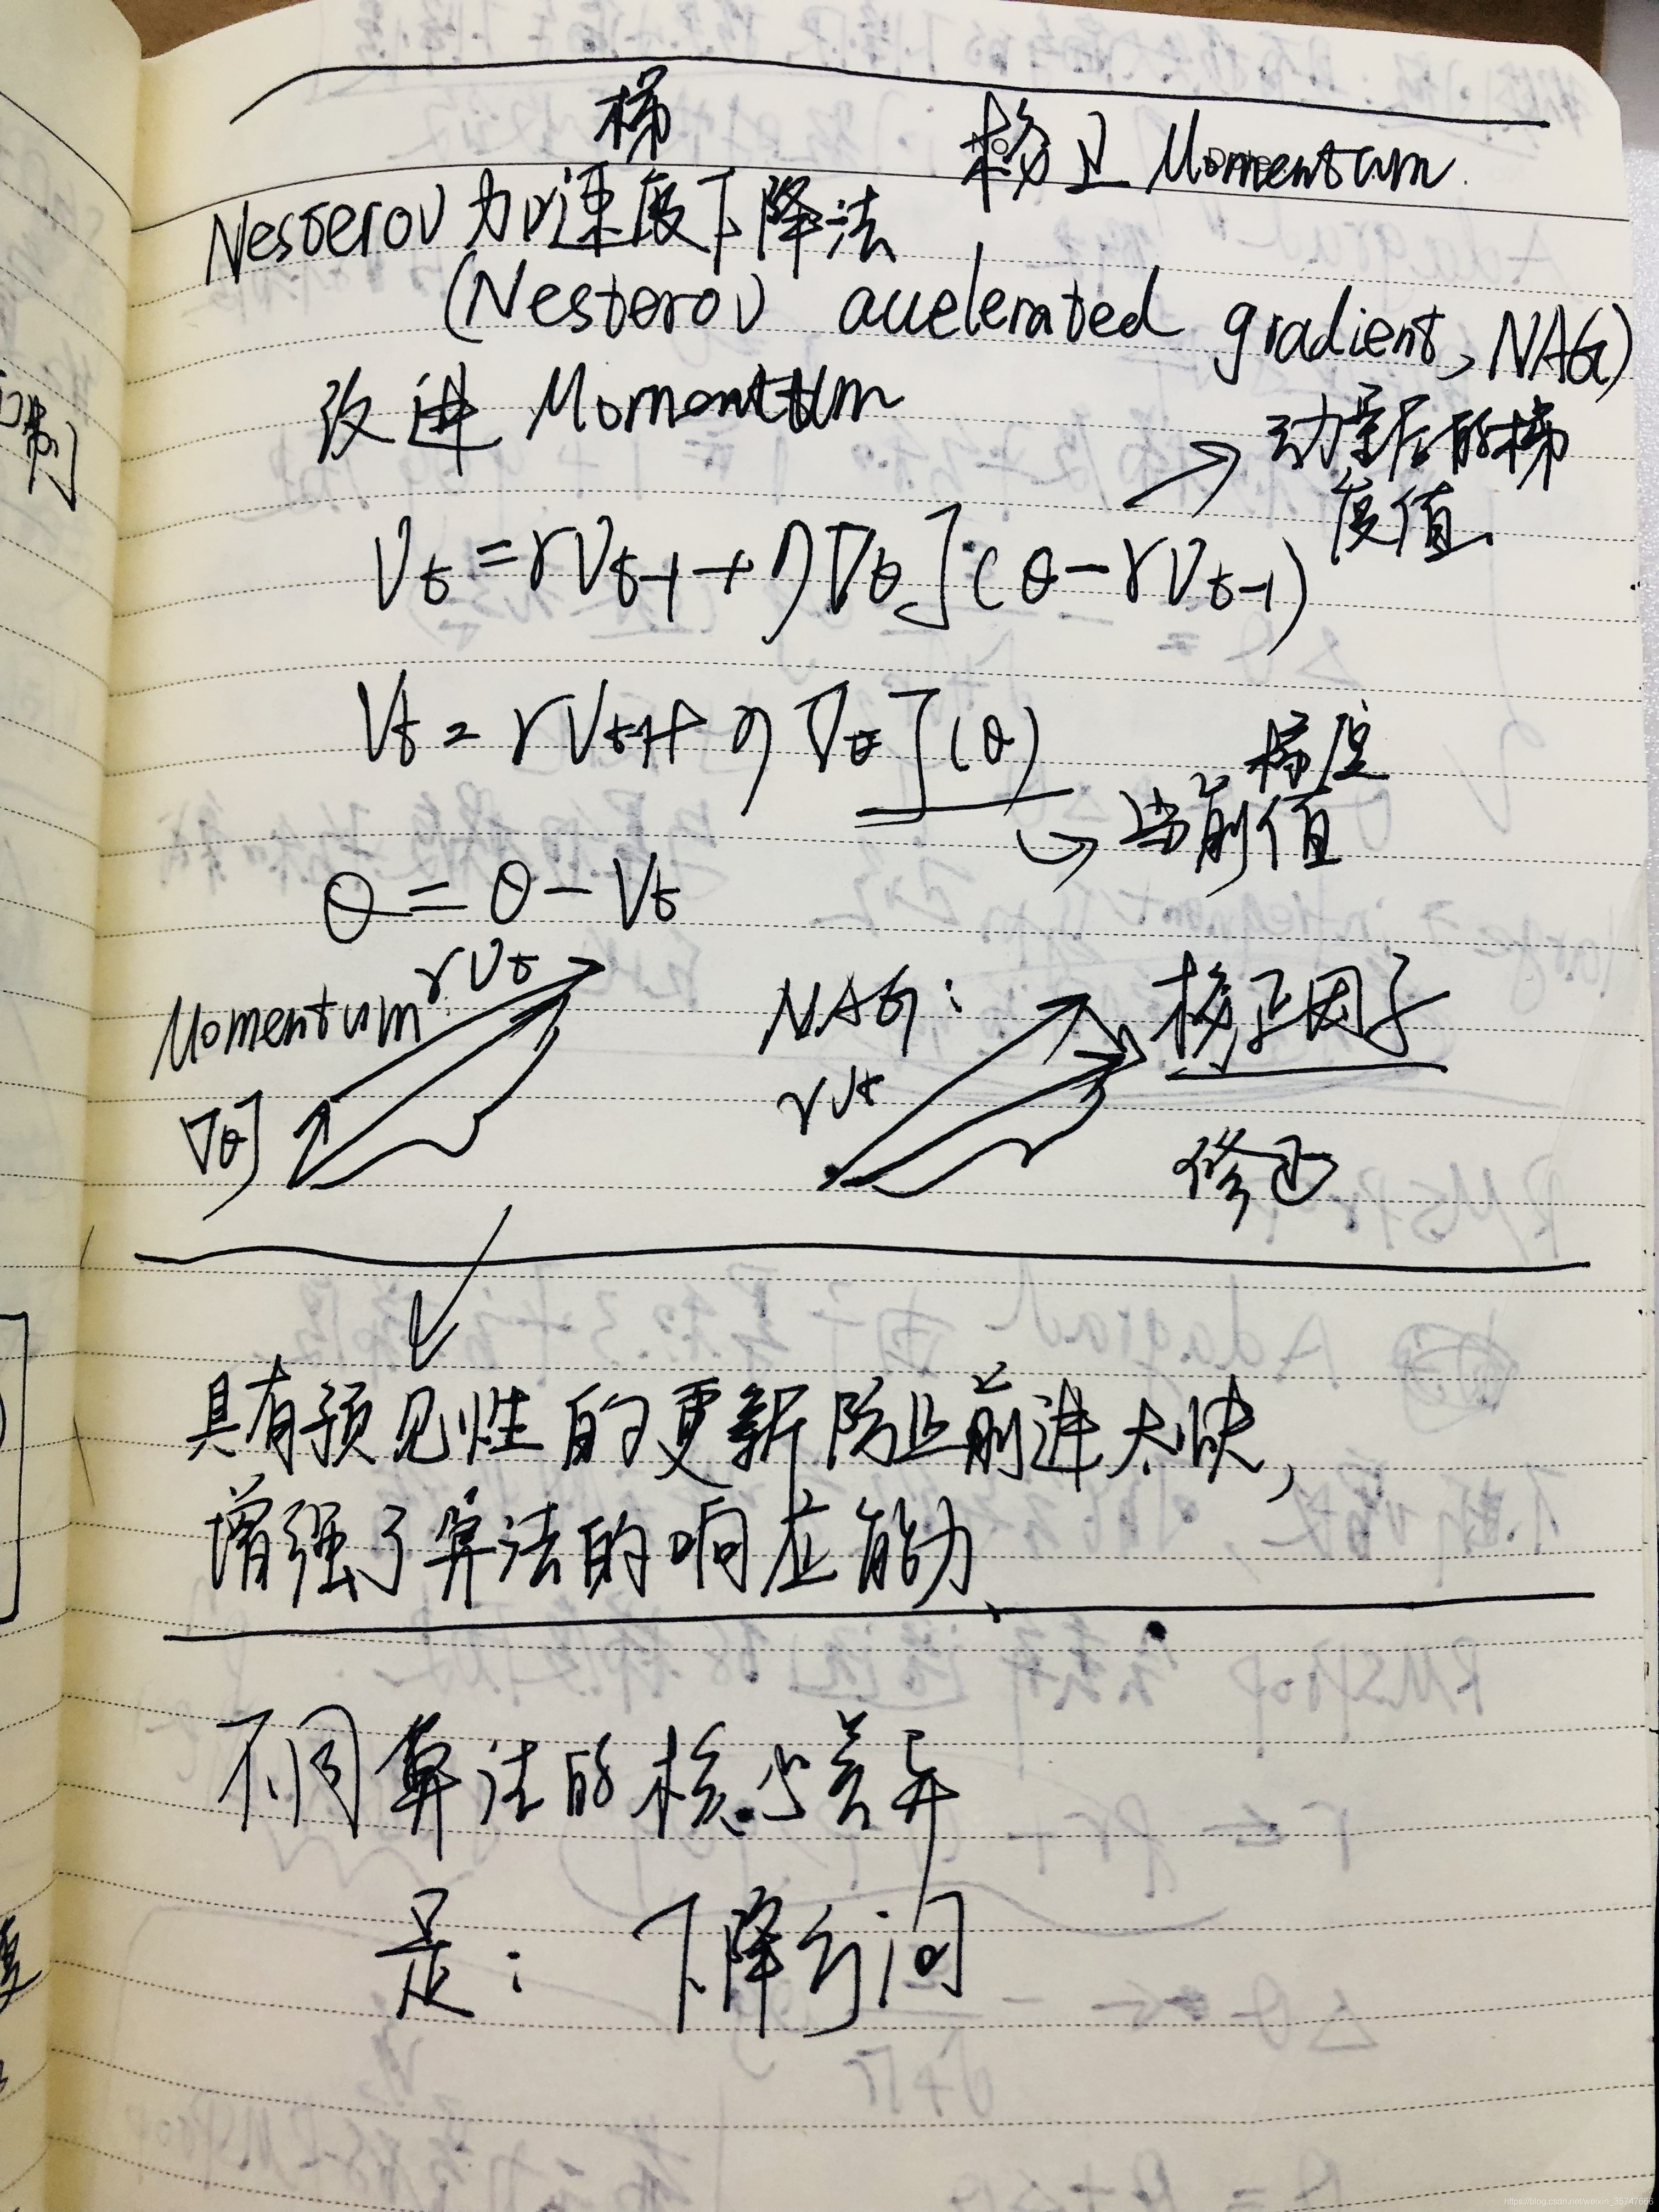 梯 校正 Momentum.
Nesterov 加速度下降法
(Nesterov accelerated gradient, NAG)
改进 Momentum
→ 动量后的梯
度值.
Vt = γVt-1 + η∇θJ(θ-γVt-1)
Vt = γVt-1 + η∇θJ(θ)
梯度
→ 当前值
θ = θ - Vt
Momentum γVt
∇θJ
NAG: 校正因子
γVt
修正
具有预见性的更新防止前进太快,
增强了算法的响应能力.
不同算法的核心差异
是: 下降方向
https://blog.csdn.net/weixin_35747666